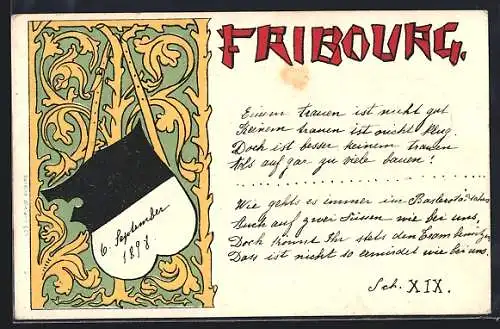 FRIBOURG.
Einem trauen ist nicht gut
Keinem trauen ist nicht klug
Doch ist besser keinem trauen
Als auf gar zu viele bauen!
Wie gehts es immer im
Auch auf zwei Füssen wie bei uns,
Doch Ihr stets den
Dass ist nicht so wie bei uns.
Sch. XIX.
6. September
1898